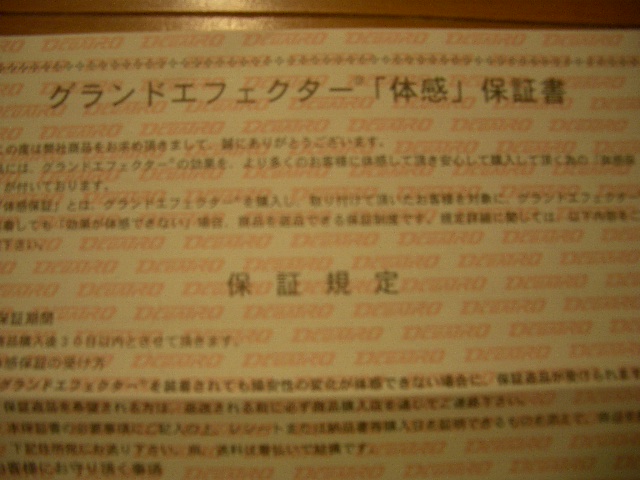 グランドエフェクター®「体感」保証書
この度は弊社商品をお求め頂きまして、誠にありがとうございます。
には、グランドエフェクター®の効果を、より多くのお客様に体感して頂き安心して購入して頂く為の「体感保
が付いております。
体感保証」とは、グランドエフェクター®を購入し、取り付けて頂いたお客様を対象に、グランドエフェクター
着しても「効果が体感できない」場合、商品を返品できる保証制度です。規定詳細に関しては、以下内容をご
下さい。
保証規定
保証期間
商品購入後30日以内とさせて頂きます。
体感保証の受け方
グランドエフェクター®を装着されても操安性の変化が体感できない場合に、保証返品が受けられます
保証返品を希望される方は、返送される前に必ず商品購入店を通じてご連絡下さい。
本保証書の必要事項にご記入の上、レシートまたは納品書等購入日を証明できるものを添えて、商品を
下記住所宛にお送り下さい。尚、送料は着払いで結構です。
お客様にお守り頂く事項